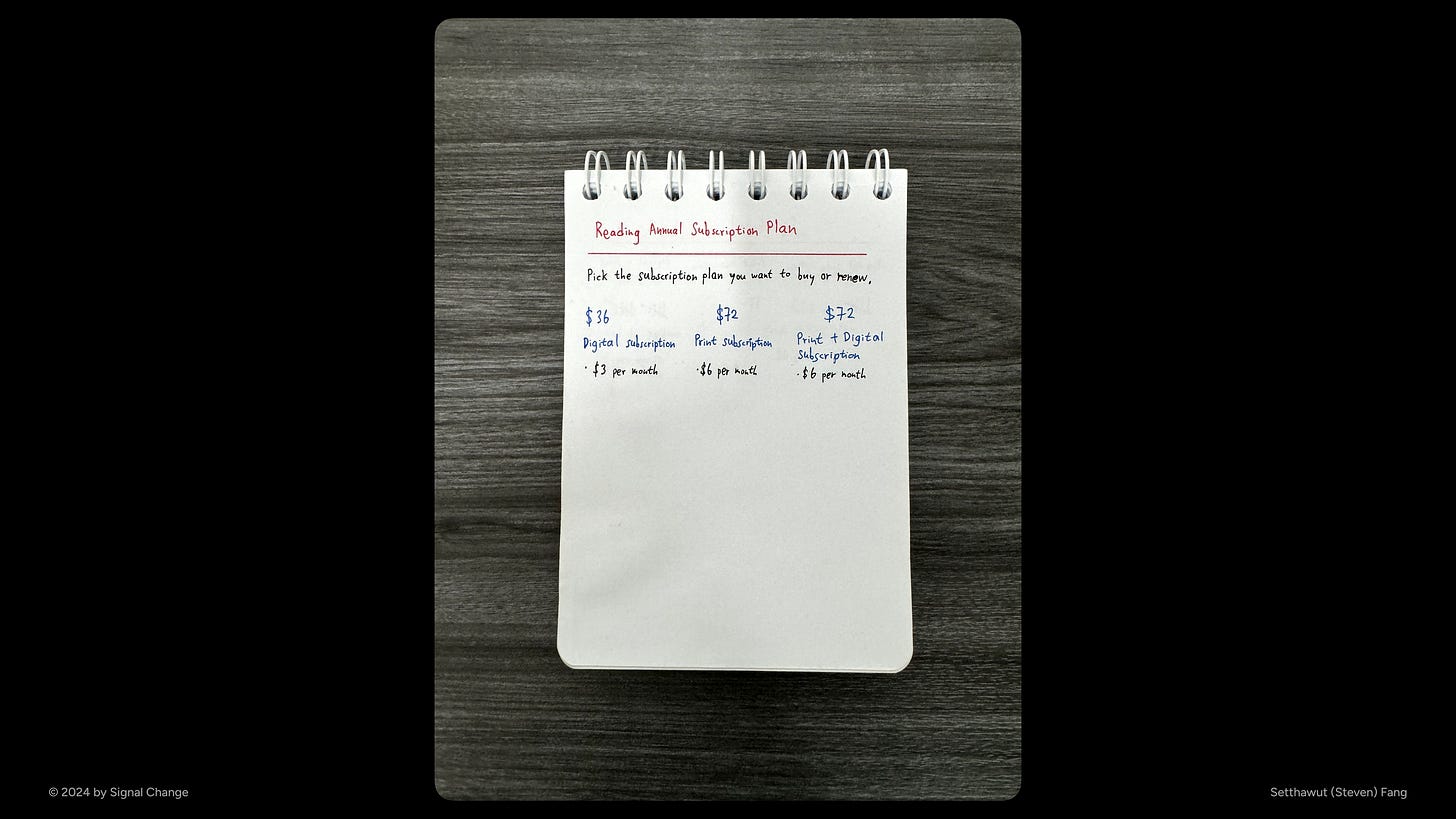 Reading Annual Subscription Plan
Pick the subscription plan you want to buy or renew.
$36
Digital subscription
· $3 per month
$72
Print subscription
· $6 per month
$72
Print + Digital
Subscription
· $6 per month
© 2024 by Signal Change
Setthawut (Steven) Fang